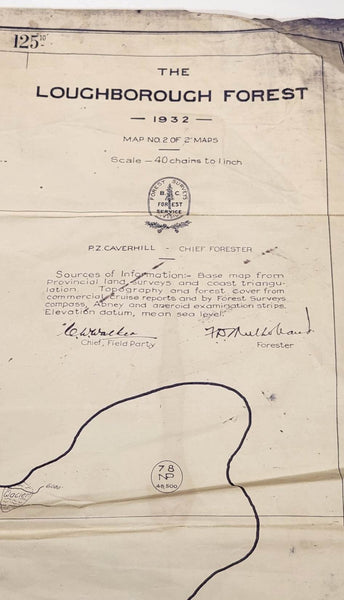 125 10'
THE
LOUGHBOROUGH FOREST
— 1932 —
MAP NO. 2 OF 2 MAPS
Scale - 40 chains to 1 inch
FOREST SURVEYS
B. C.
FOREST
SERVICE
P.Z. CAVERHILL - CHIEF FORESTER
Sources of Information:- Base map from
Provincial land surveys and coast triangu-
lation. Topography and forest cover from
commercial cruise reports and by Forest Surveys
compass, Abney and aneroid examination strips.
Elevation datum, mean sea level.
Chief, Field Party
Forester
78
NP
Glacier